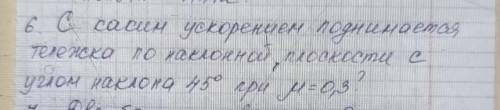 6. С каким ускорением поднимается
тележка по наклонной плоскости с
углом наклона 45° при μ=0,3?